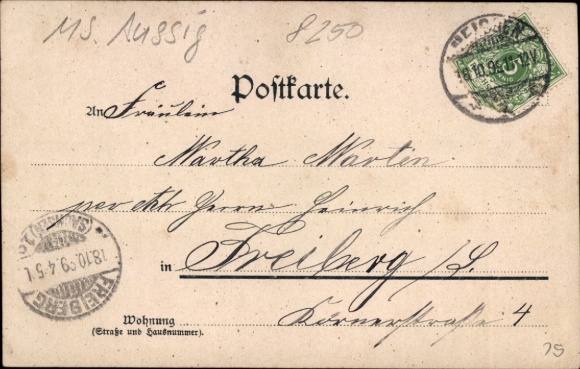 MS. Aussig 8250
MEISSEN
5
Postkarte.
An Fräulein
Martha Marten
per adr. Herrn Heinrich
in Freiberg /S.
FREIBERG
(SACHSEN)
18.10.99. 4-5 N.
Wohnung
(Straße und Hausnummer).
Körnerstraße 4
75